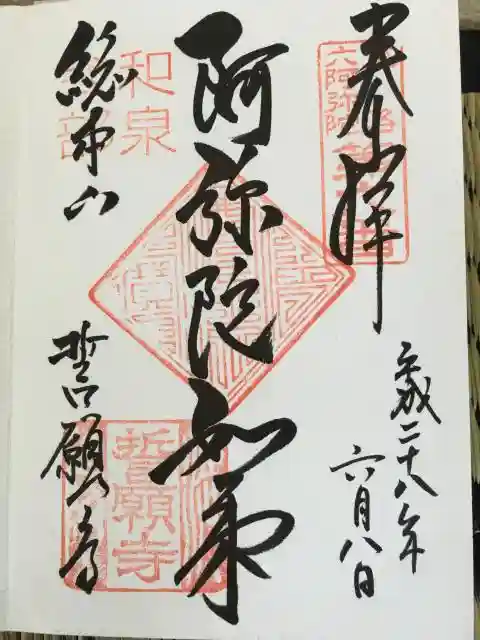 奉拝
平成二十八年
六月八日
六阿弥陀
阿弥陀如来
総本山
誓願寺
和泉
誓願寺